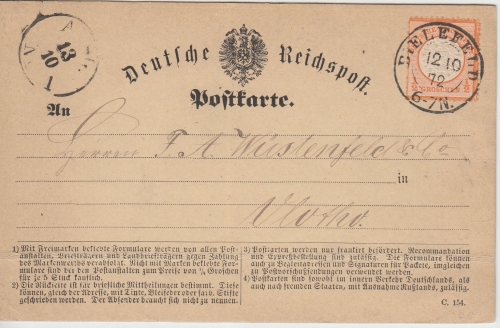 A
V
13
10
1
Deutsche Reichspost.
Postkarte.
BIELEFELD
12 10
72
6-7N.
GROSCHEN
An
Herrn F. A. Wüstenfeld & Co
in
Vlotho.
1) Mit Freimarken beklebte Formulare werden von allen Post-
anstalten, Briefträgern und Landbriefträgern gegen Zahlung
des Markenwerths verabfolgt. Nicht mit Marken beklebte For-
mulare sind bei den Postanstalten zum Preise von ¼ Groschen
für je 5 Stück käuflich.
2) Die Rückseite ist für briefliche Mittheilungen bestimmt. Diese
können, gleich der Adresse, mit Tinte, Bleifeder oder farb. Stifte
geschrieben werden. Der Absender braucht sich nicht zu nennen.
3) Postkarten werden nur frankirt befördert. Recommandation
und Expreßbestellung sind zulässig. Die Formulare können
auch zu Begleitadressen und Signaturen für Packete, imgleichen
zu Postvorschußsendungen verwendet werden.
4) Postkarten sind im innern Verkehr Deutschlands, als
auch nach fremden Staaten, mit Ausnahme Rußlands, zulässig.
C. 154.